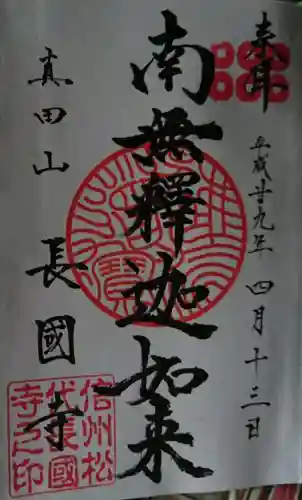 来拜
平成廿九年 四月十三日
南無釋迦如来
真田山 長國寺
信州松
代長國
寺之印